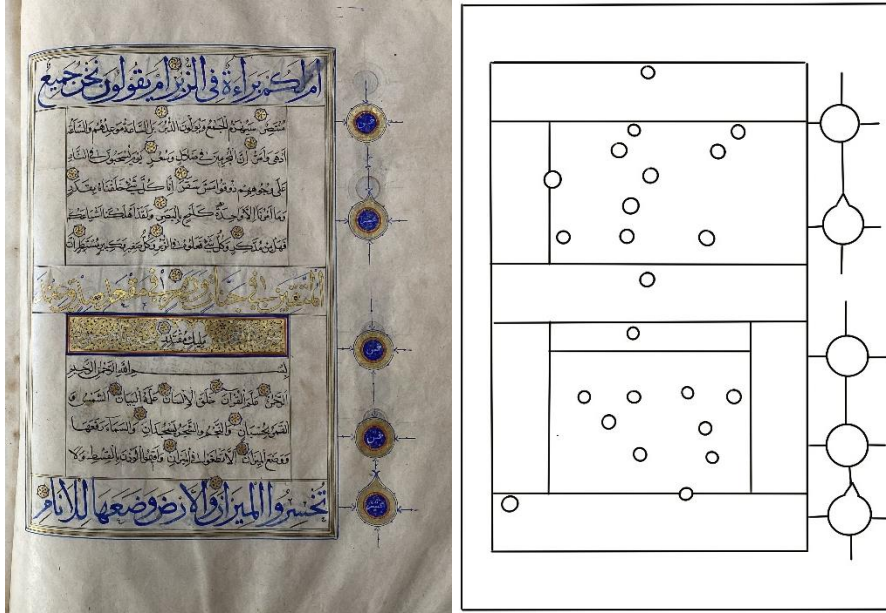 ام لكم براءة فى الزبر ام يقولون نحن جميع
منتصر سيهزم الجمع ويولون الدبر بل الساعة موعدهم والساعة
ادهى وامر ان المجرمين فى ضلال وسعر يوم يسحبون فى النار
على وجوههم ذوقوا مس سقر انا كل شىء خلقناه بقدر
وما امرنا الا واحدة كلمح بالبصر ولقد اهلكنا اشياعكم
فهل من مدكر وكل شىء فعلوه فى الزبر وكل صغير وكبير مستطر ان
المتقين فى جنات ونهر فى مقعد صدق عند
مليك مقتدر
بسم الله الرحمن الرحيم
الرحمن علم القرآن خلق الانسان علمه البيان الشمس و
القمر بحسبان والنجم والشجر يسجدان والسماء رفعها
ووضع الميزان الا تطغوا فى الميزان واقيموا الوزن بالقسط ولا
تخسروا الميزان والارض وضعها للانام